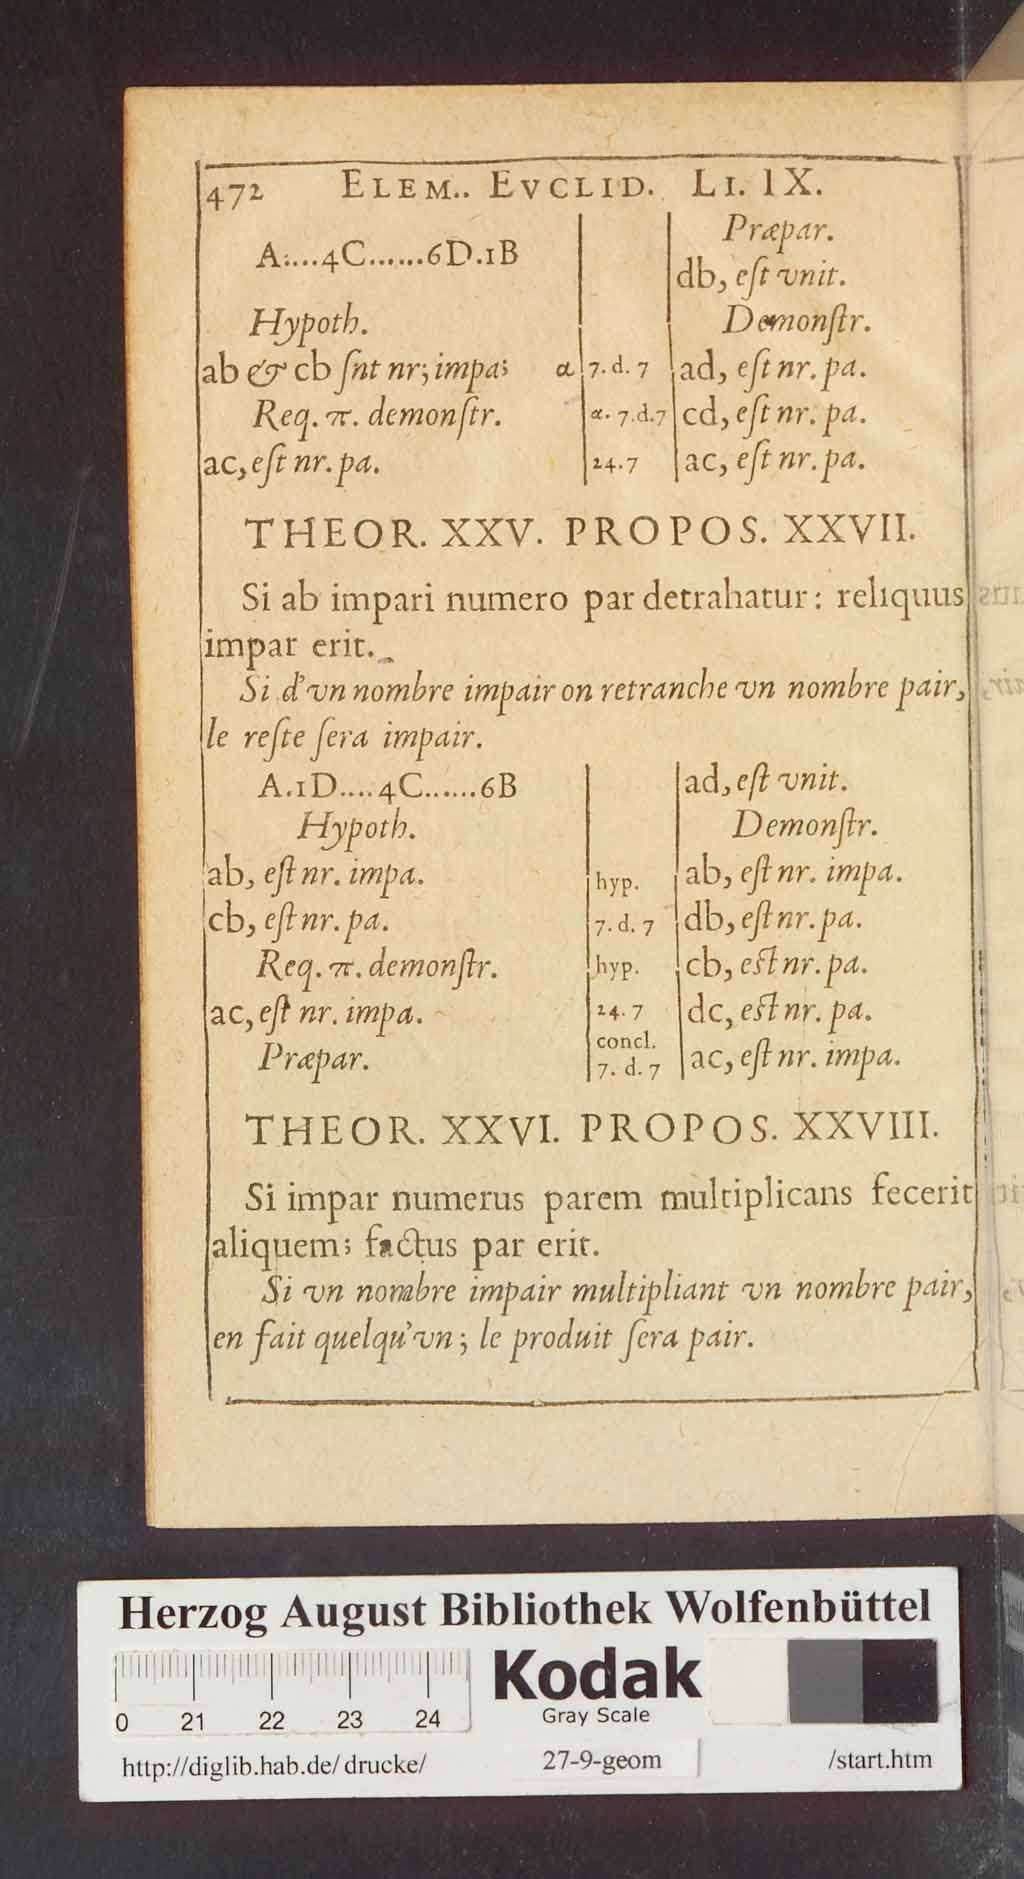 472 ELEM.. EVCLID. LI. IX.
A:...4C......6D.1B
Hypoth.
ab & cb ſnt nr; impa;
Req. π. demonſtr.
ac, eſt nr. pa.
α 7. d. 7
α. 7.d.7
24.7
Præpar.
db, eſt vnit.
Demonſtr.
ad, eſt nr. pa.
cd, eſt nr. pa.
ac, eſt nr. pa.
THEOR. XXV. PROPOS. XXVII.
Si ab impari numero par detrahatur: reliquus
impar erit.
Si d'vn nombre impair on retranche vn nombre pair,
le reſte ſera impair.
A.1D....4C......6B
Hypoth.
ab, eſt nr. impa.
cb, eſt nr. pa.
Req. π. demonſtr.
ac, eſt nr. impa.
Præpar.
hyp.
7. d. 7
hyp.
24. 7
concl.
7. d. 7
ad, eſt vnit.
Demonſtr.
ab, eſt nr. impa.
db, eſt nr. pa.
cb, eſt nr. pa.
dc, eſt nr. pa.
ac, eſt nr. impa.
THEOR. XXVI. PROPOS. XXVIII.
Si impar numerus parem multiplicans fecerit
aliquem; factus par erit.
Si vn nombre impair multipliant vn nombre pair,
en fait quelqu'vn; le produit ſera pair.
Herzog August Bibliothek Wolfenbüttel
Kodak
Gray Scale
0 21 22 23 24
http://diglib.hab.de/drucke/ 27-9-geom /start.htm